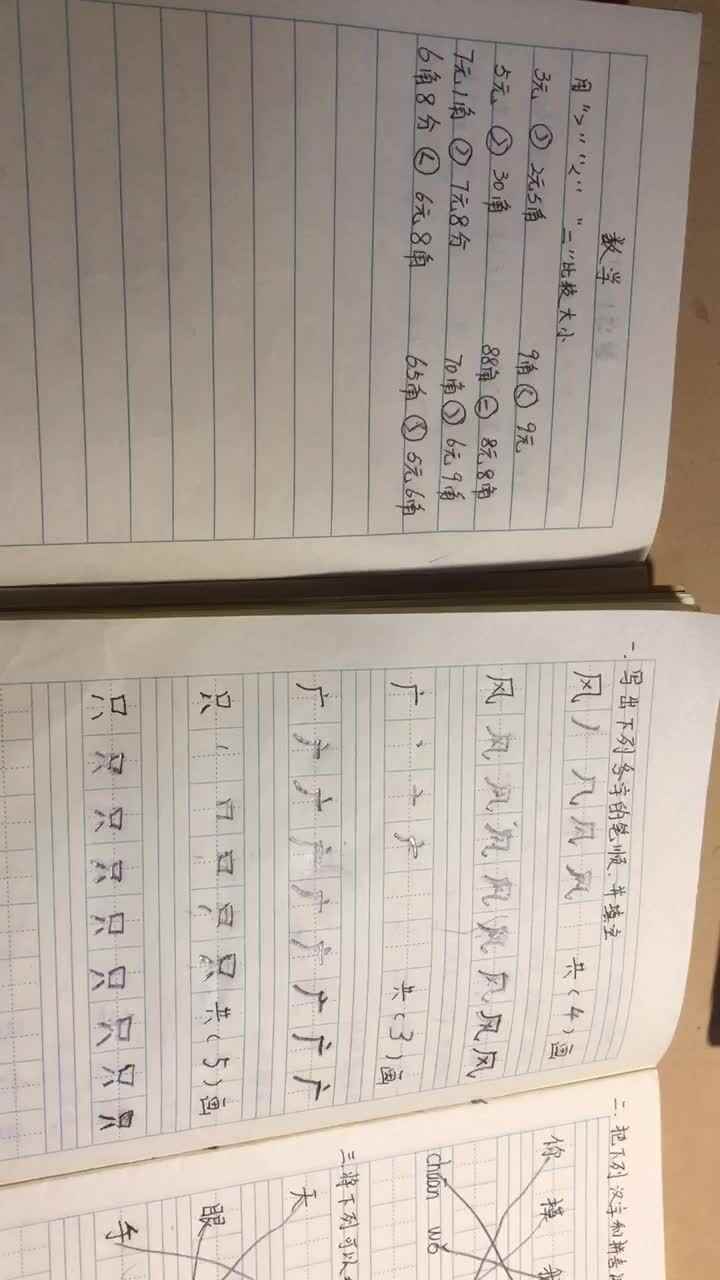 数学
用">""<""="比较大小
3元 > 2元5角 9角 < 9元
5元 > 30角 88角 = 8元8角
7元1角 > 7元8分 70角 > 6元9角
6角8分 < 6元8角 65角 > 5元6角
一.写出下列各字的笔顺.并填空
风 丿 几 风 风 共(4)画
风 风 风 风 风 风 风 风
广 丶 亠 广 共(3)画
广 广 广 广 广 广 广 广 广
只 丨 口 口 只 只 共(5)画
只 只 只 只 只 只 只 只 只
二.把下列汉字和拼音
你 操 我
chuān wǒ
三.将下列可以
天
眼
冬